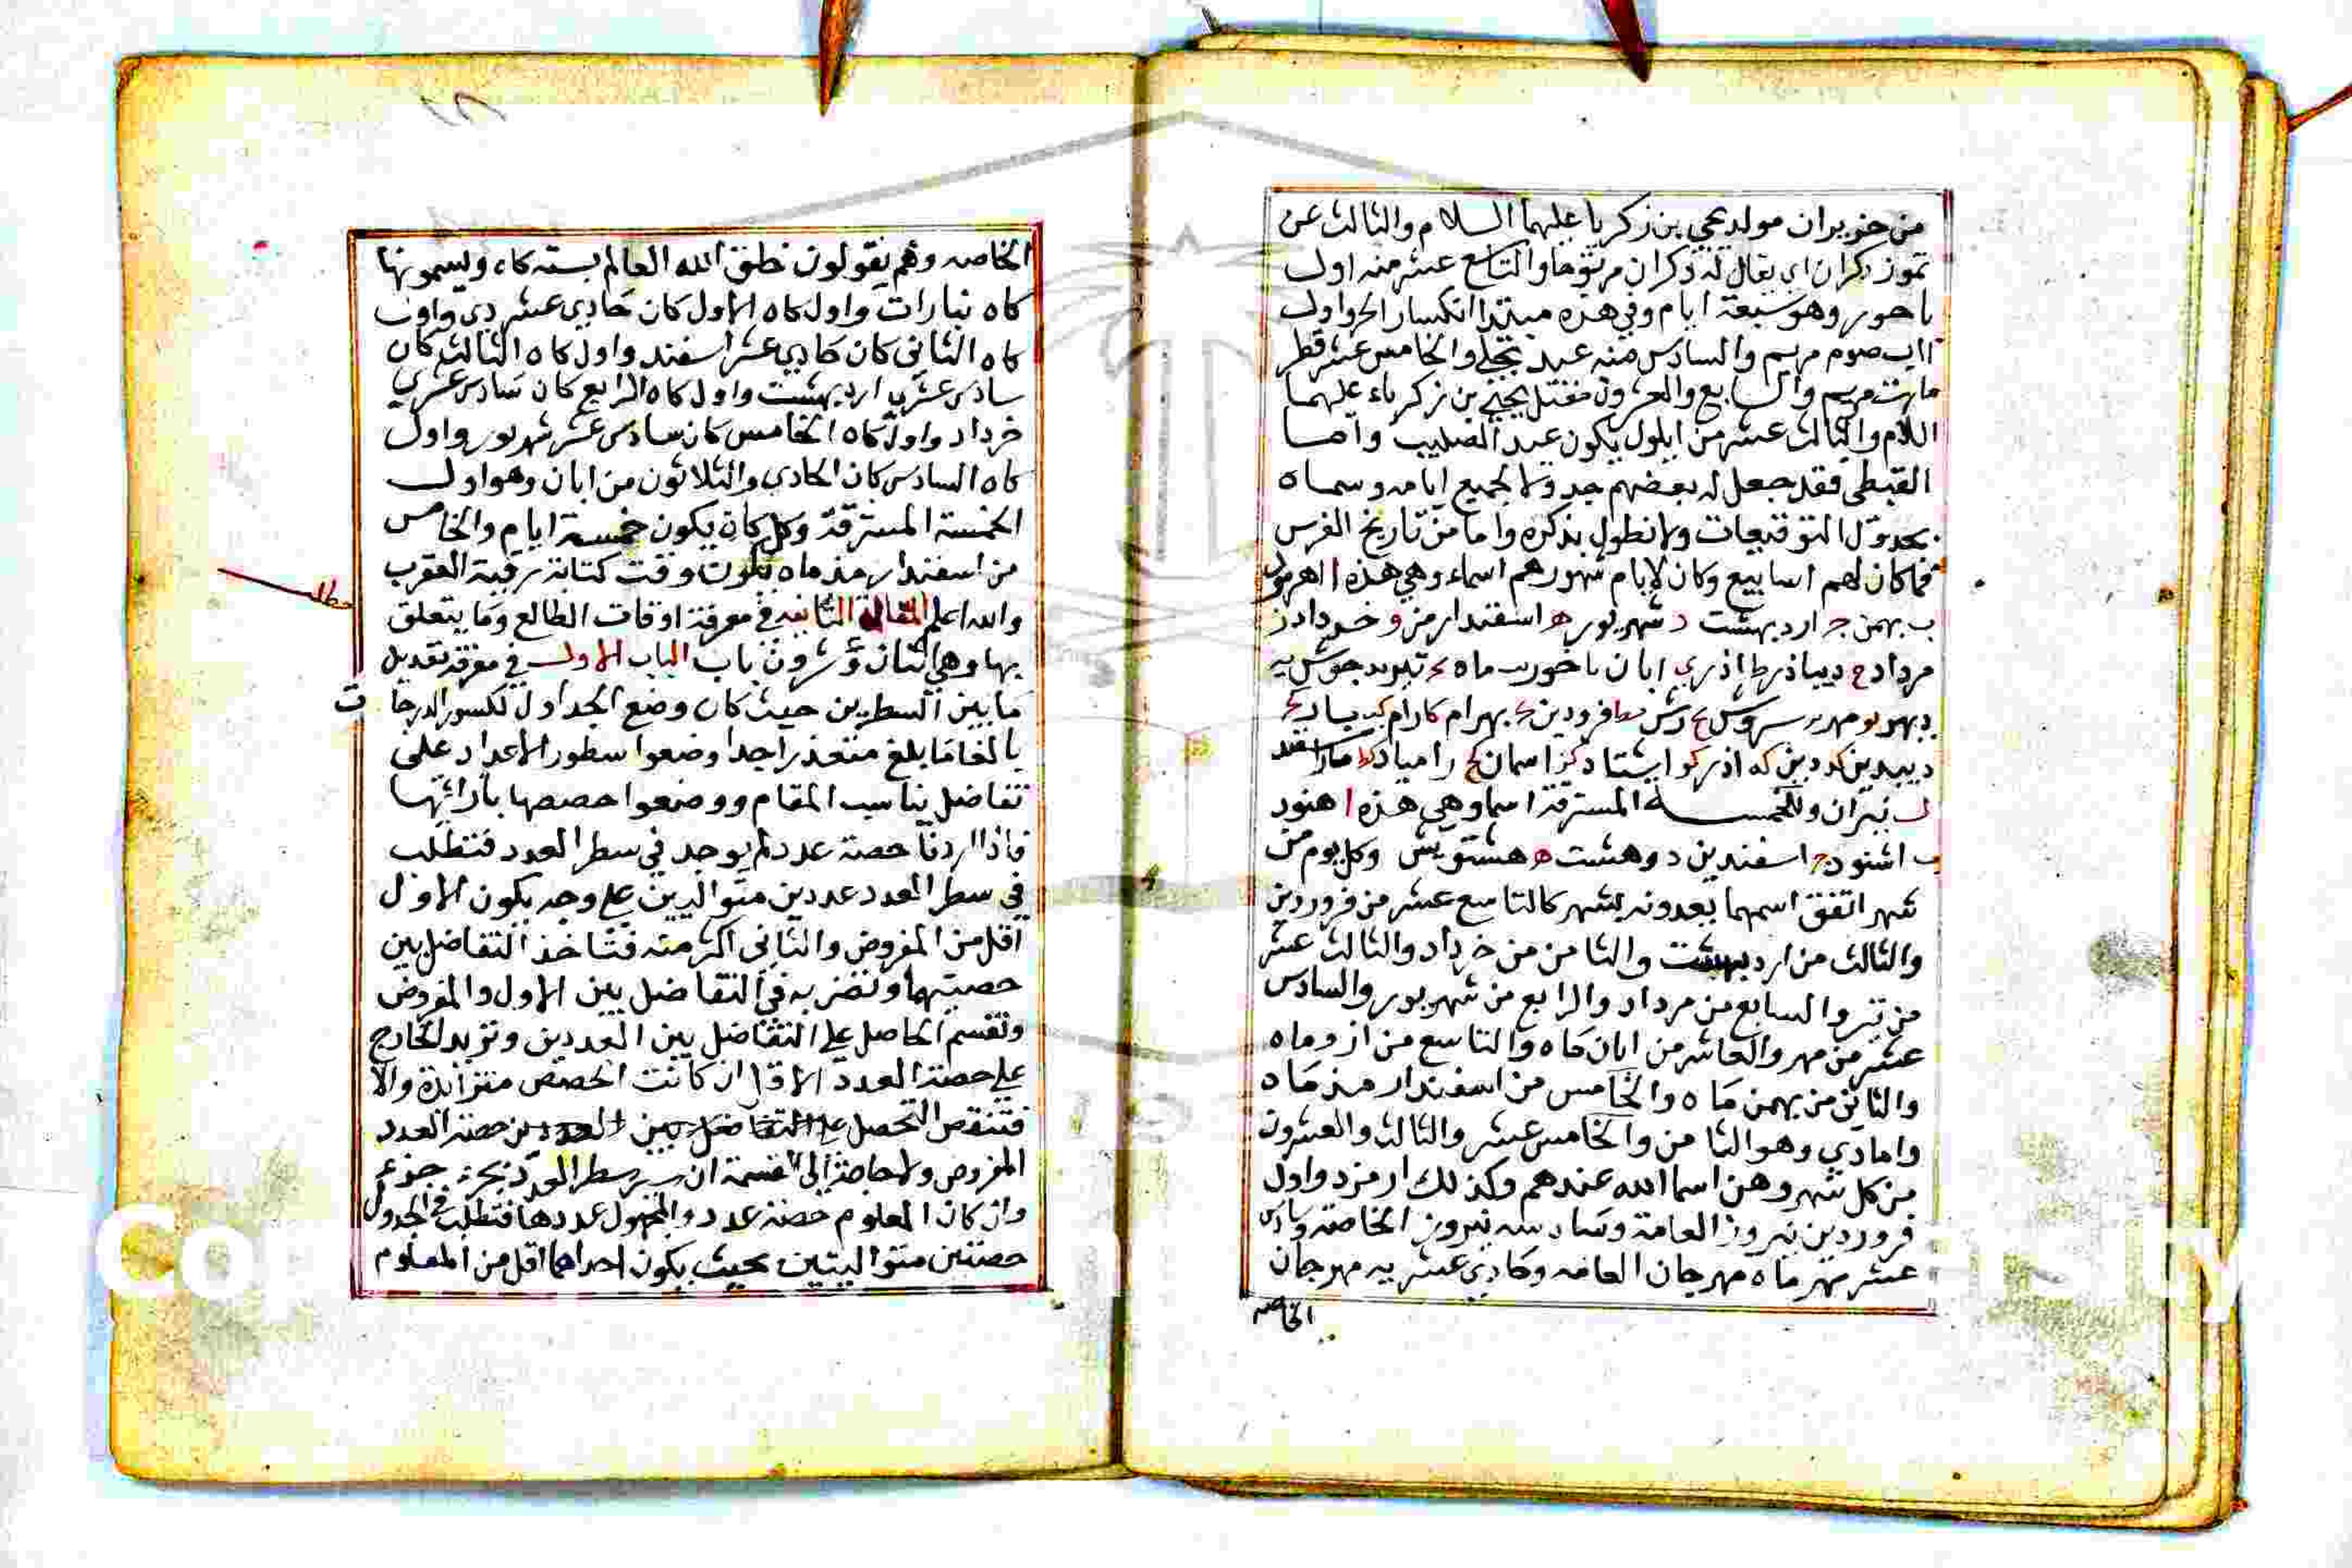 من حزيران مولد يحيي بن زكريا عليهما السلام والثالث عن
تموز ذكران اي يقال له ذكران مرتوما والتاسع عشر منه اول
باحور وهو سبعة ايام وفي هذه مبتدا انكسار الحر واول
اب صوم مريم والسادس منه عيد تجلي والخامس عشر فطر
مريم والسابع والعشرون مقتل يحيي بن زكرياء عليهما
اللام والثالث عشر من ايلول يكون عيد الصليب واما
القبطي فقد جعل له بعضهم جدولا لجميع ايامه وسماه
بجدول التوقيعات ولا نطول بذكره واما من تاريخ الفرس
فما كان لهم اسابيع وكان لايام شهورهم اسماء وهي هذه ا
ب بهمن ج ارد بهشت د شهريور ه اسفندارمز و خرداد ز
مرداد ح ديباذر ط اذر ي ابان يا خور يب ماه يج تير يد جوش يه
ديبهر يو مهر يز سروش يح رش يط فرودين ك بهرام كا رام كب باد كج
ديبدين كد دين كه اذر كو اشتاد كز اسمان كح رامياد كط
ل نيران وللخمسة المسترقة اسما وهي هذه ا اهنود
ب اشنود ج اسفندين د وهشت ه هشتويش وكل يوم من
شهر اتفق اسمهما يعدونه بشهر كالتاسع عشر من فروردين
والثالث من ارد بهشت والثامن من خرداد والثالث عشر
من تير والسابع من مرداد والرابع من شهريور والسادس
عشر من مهر والعاشر من ابان ماه والتاسع من اذر وماه
والثاني من بهمن ماه والخامس من اسفندار مذ ماه
واما دي وهو الثامن والخامس عشر والثالث والعشرون
من كل شهر وهن اسما الله عندهم وكذلك ارمزد واول
فروردين نيروز العامة وسادسه نيروز الخاصة وسادس
عشر مهر ماه مهرجان العامه وحادي عشريه مهرجان
الخاصه
الخاصه وهم يقولون خلق الله العالم بسته كاه ويسمونها
كاه نبارات واول كاه الاول كان حادي عشر دي واول
كاه الثاني كان حادي عشر اسفند واول كاه الثالث كان
سادس عشري ارد بهشت واول كاه الرابع كان سادس عشري
خرداد واول كاه الخامس كان سادس عشر شهريور واول
كاه السادس كان الحادي والثلاثون من ابان وهو اول
الخمسة المسترقة وكل كاه يكون خمسة ايام والخامس
من اسفندار مذ ماه يكون وقت كتابة رقية العقرب
والله اعلم المقالة الثانيه في معرفة اوقات الطالع وما يتعلق
بها وهي اثنان وعشرون باب الباب الاول في معرفة تعديل
ما بين السطرين حيث كان وضع الجداول لكسور الدرجات
بالغا ما بلغ متعذر اجدا وضعوا سطور الاعداد على
تفاضل يناسب المقام ووضعوا حصصها بازائها
فاذا اردنا حصة عدد لم يوجد في سطر العدد فنطلب
في سطر العدد عددين متواليين علي وجه يكون الاول
اقل من المفروض والثاني اكثر منه فناخذ التفاضل بين
حصتيهما ونضربه في التفاضل بين الاول والمفروض
ونقسم الحاصل علي التفاضل بين العددين ونزيد الخارج
علي حصة العدد الاقل ان كانت الحصص متزائدة والا
فتنقص التحصل علي التفاضل بين العددين حصة العدد
المفروض ولا حاجة الي القسمة ان سطر العدد
وان كان المعلوم حصة عدد والمجهول عددها فنطلب في الجدول
حصتين متواليتين بحيث يكون احداهما اقل من المعلوم